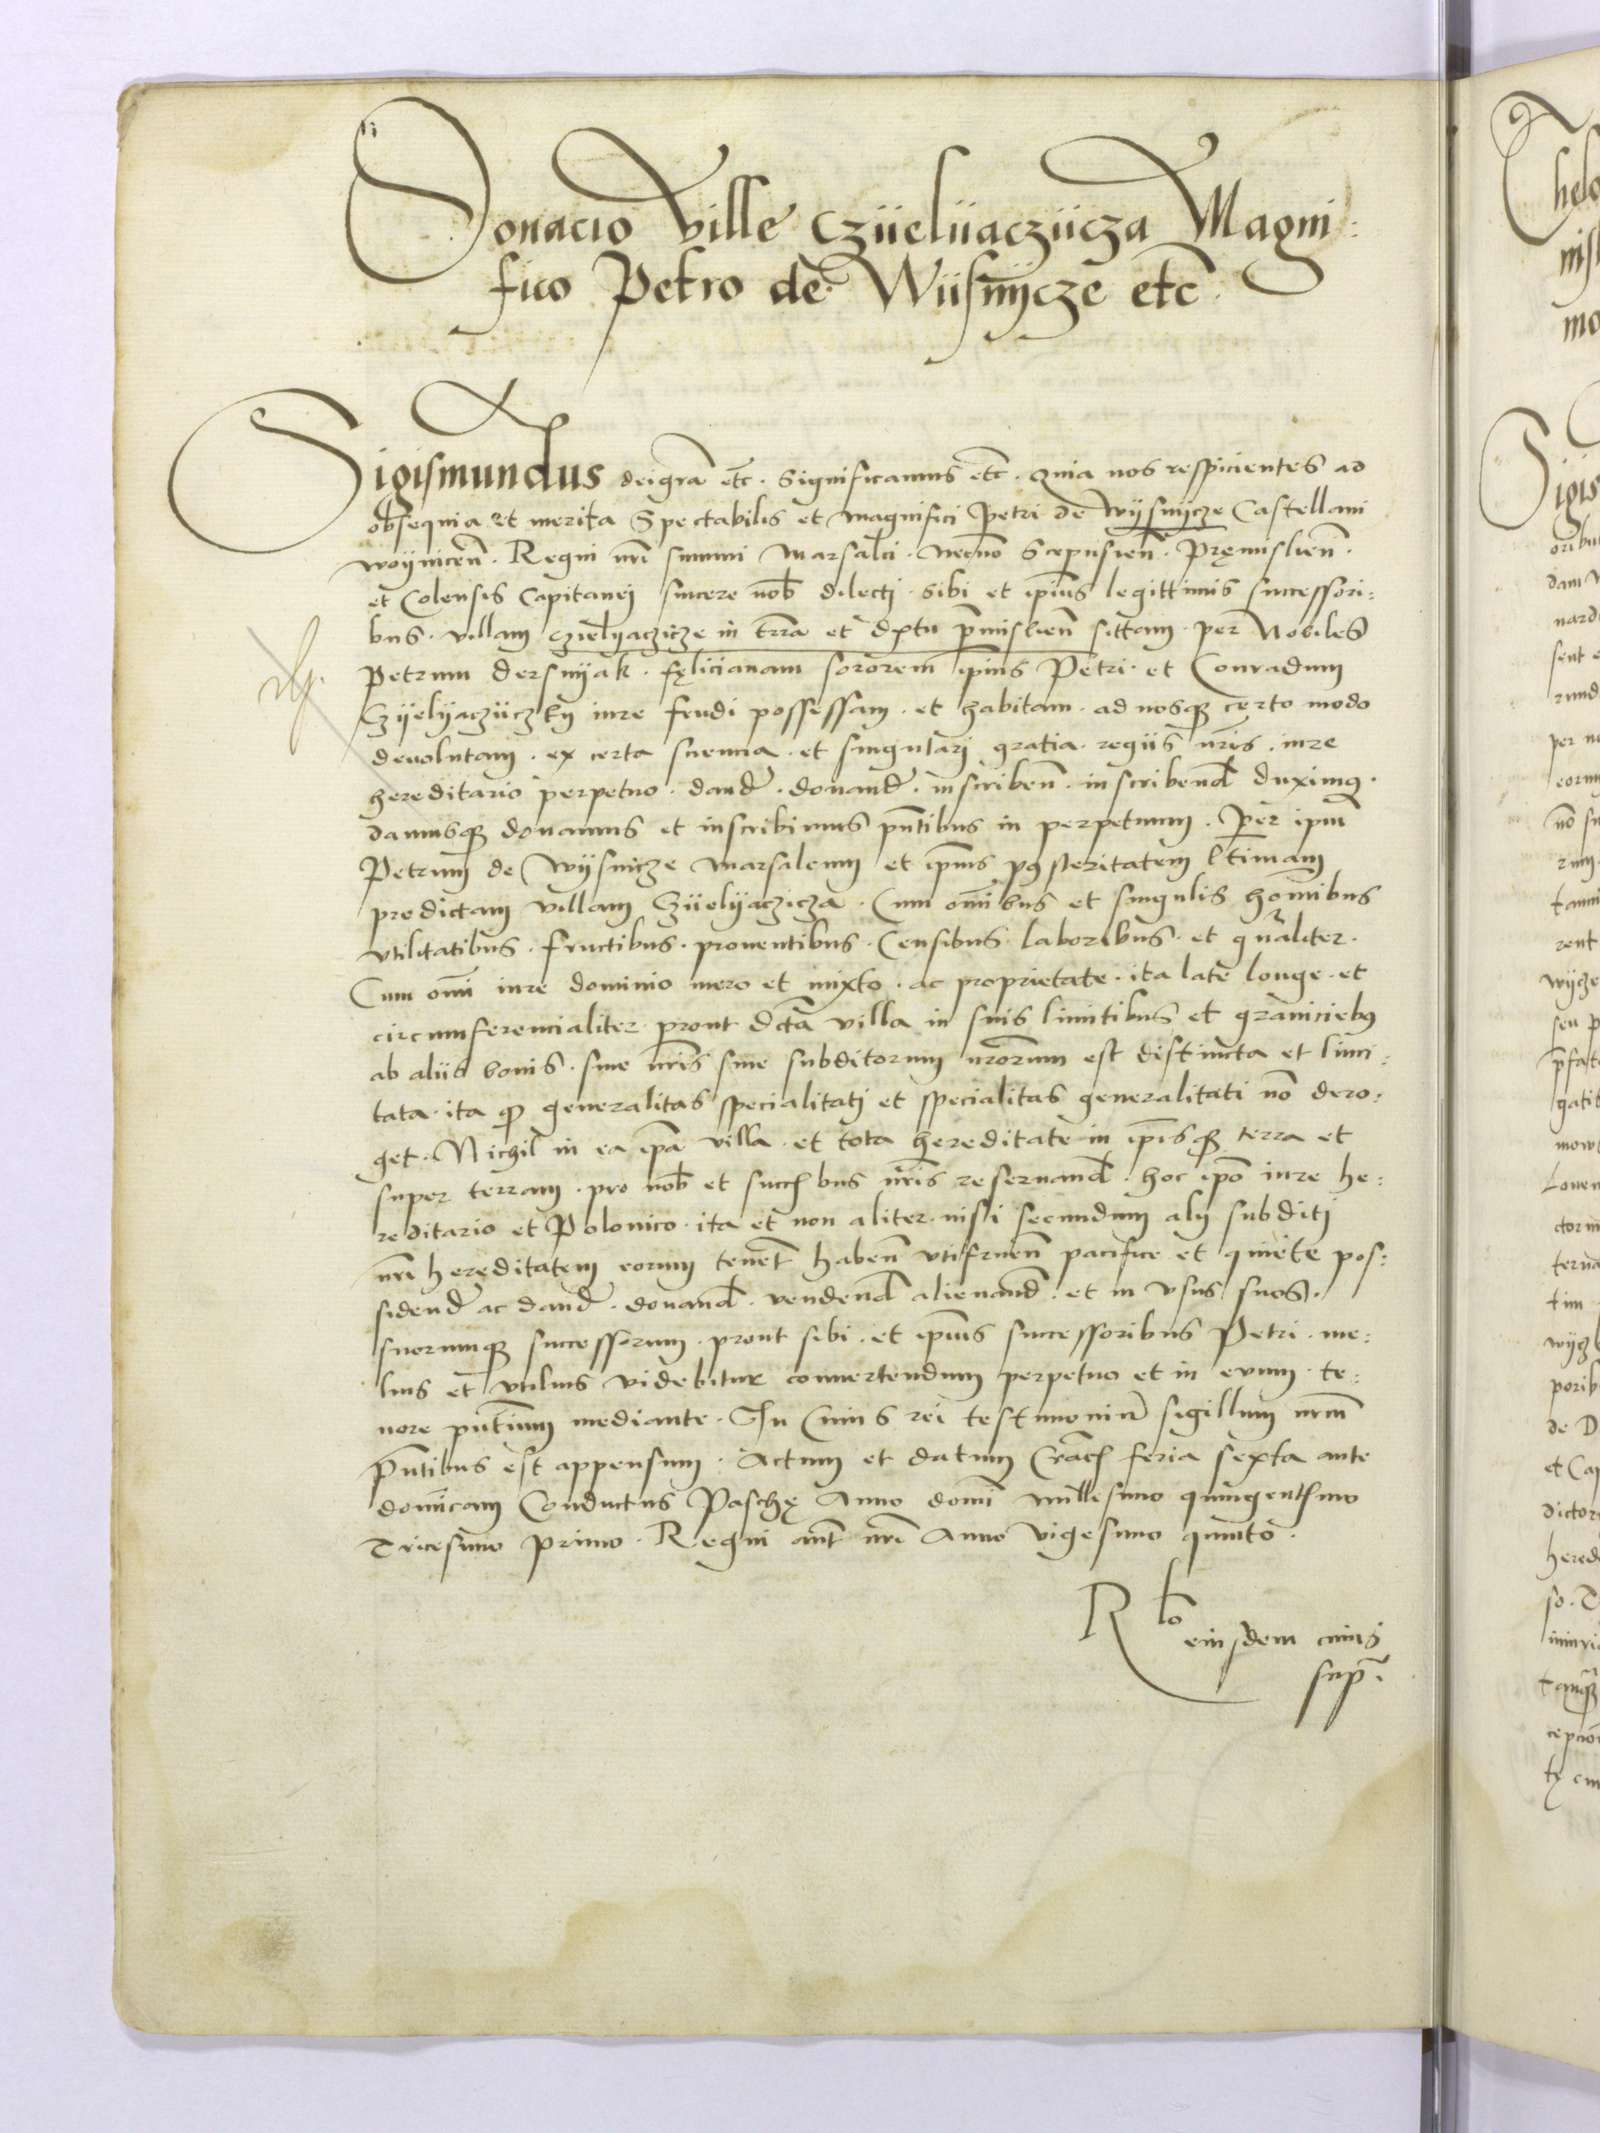 Donacio Ville Czüelüaczücza Magni:
fico Petro de Wüsnijcze etc
Sigismundus dei gra etc. Significamus etc. quia nos respicientes ad
obsequia et merita Spectabilis et magnifici Petri de Wijsnijcze Castellani
woijnicen. Regni nri summi Marsalci. necno Scepusien. Pręmislien.
et Colensis Capitanei sincere nob dilecti. sibi et ipius legittimis successori:
bus. villam czielyaczicze in terra et dxtu premislien sittam. per Nobiles
Petrum dersnijak. fęlicianam sororem ipius Petri. et Conradum
Czÿelÿaczüczkÿ iure feudi possessam. et habitam. ad nosq certo modo
deuolutam. ex certa sciencia. et singulari gratia regiis nris. iure
hereditario perpetuo. dand. donand. inscriben. inscribend duximus.
damusq donamus et inscribimus pntibus in perpetuum. Per ipm
Petrum de Wijsnicze marsalcum et ipius posteritatem ltimam
predictam villam Czüelÿaczicza. Cum omibus et singulis homibus
vtilitatibus. fructibus. prouentibus. Censibus. laboribus. et gnraliter.
Cum omi iure dominio mero et mixto. ac proprietate. ita late longe. et
circumferencialiter prout dcta villa in suis limitibus et graniciebus
ab aliis bonis. siue nris siue subditorum nrorum est distincta et limi:
tata. ita q generalitas specialitati et specialitas generalitati no dero:
get. Nichil in ea ipa villa. et tota hereditate in ipisq terra et
super terram. pro nob et succbus nris reseruand. hoc ipo iure he:
reditario et Polonico. ita et non aliter. nisi secundum alij subditi
nri hereditatem eorum tenet haben vtifruen pacifice et quiete pos:
sidend ac dand. donand. vendend alienand. et in vsus suos.
suorumq successorum. prout sibi. et ipius successoribus Petri. me:
lius et vtilius videbitur conuertendum perpetuo et in euum. te:
nore pntium mediante. In Cuius rei testimonium sigillum nrm
Pntibus est appensum. Actum et datum Crac feria sexta ante
domicam Conductus Paschę Anno domi millesimo quingentesimo
Tricesimo primo. Regni aut nri Anno vigesimo quinto.
Rlo
eiusdem cuius
sup.